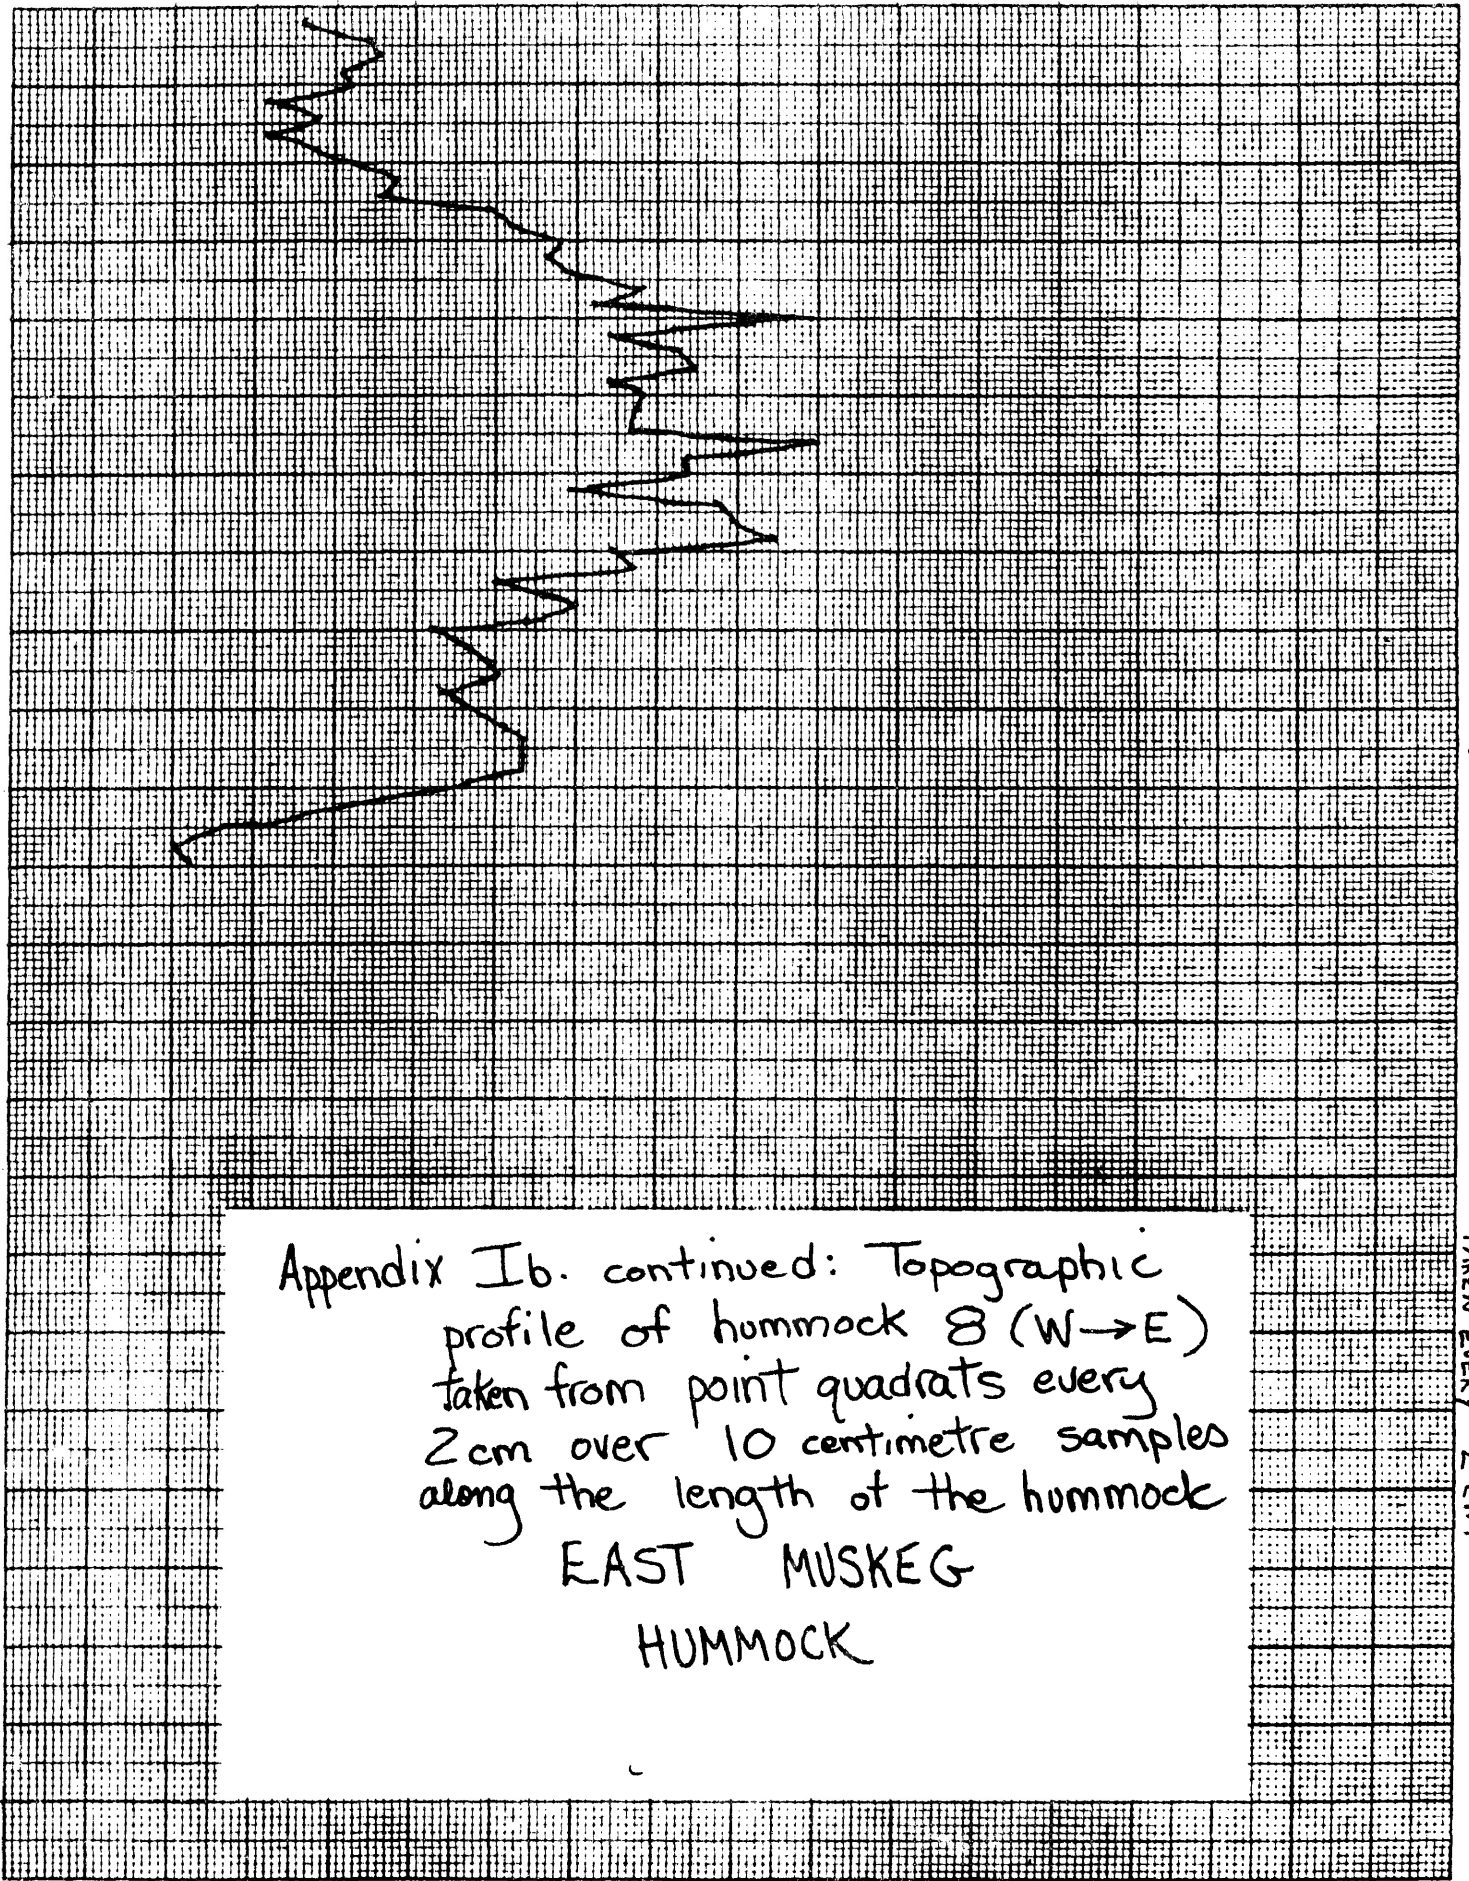 Appendix Ib. continued: Topographic
profile of hummock 8 (W→E)
taken from point quadrats every
2cm over 10 centimetre samples
along the length of the hummock
EAST MUSKEG
HUMMOCK
TAKEN EVERY 2 CM